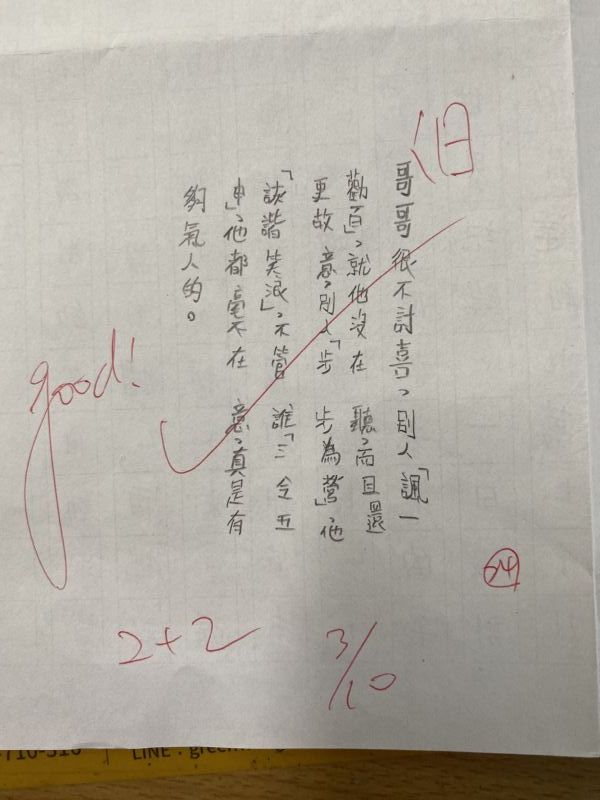 哥哥很不討喜，別人「諷一
勸百」，就他沒在聽，而且還
更故意，別人「步步為營」他
「詼諧笑浪」，不管誰「三令五
申」，他都毫不在意，真是有
夠氣人的。
good!
24
2+2
3/10
LINE